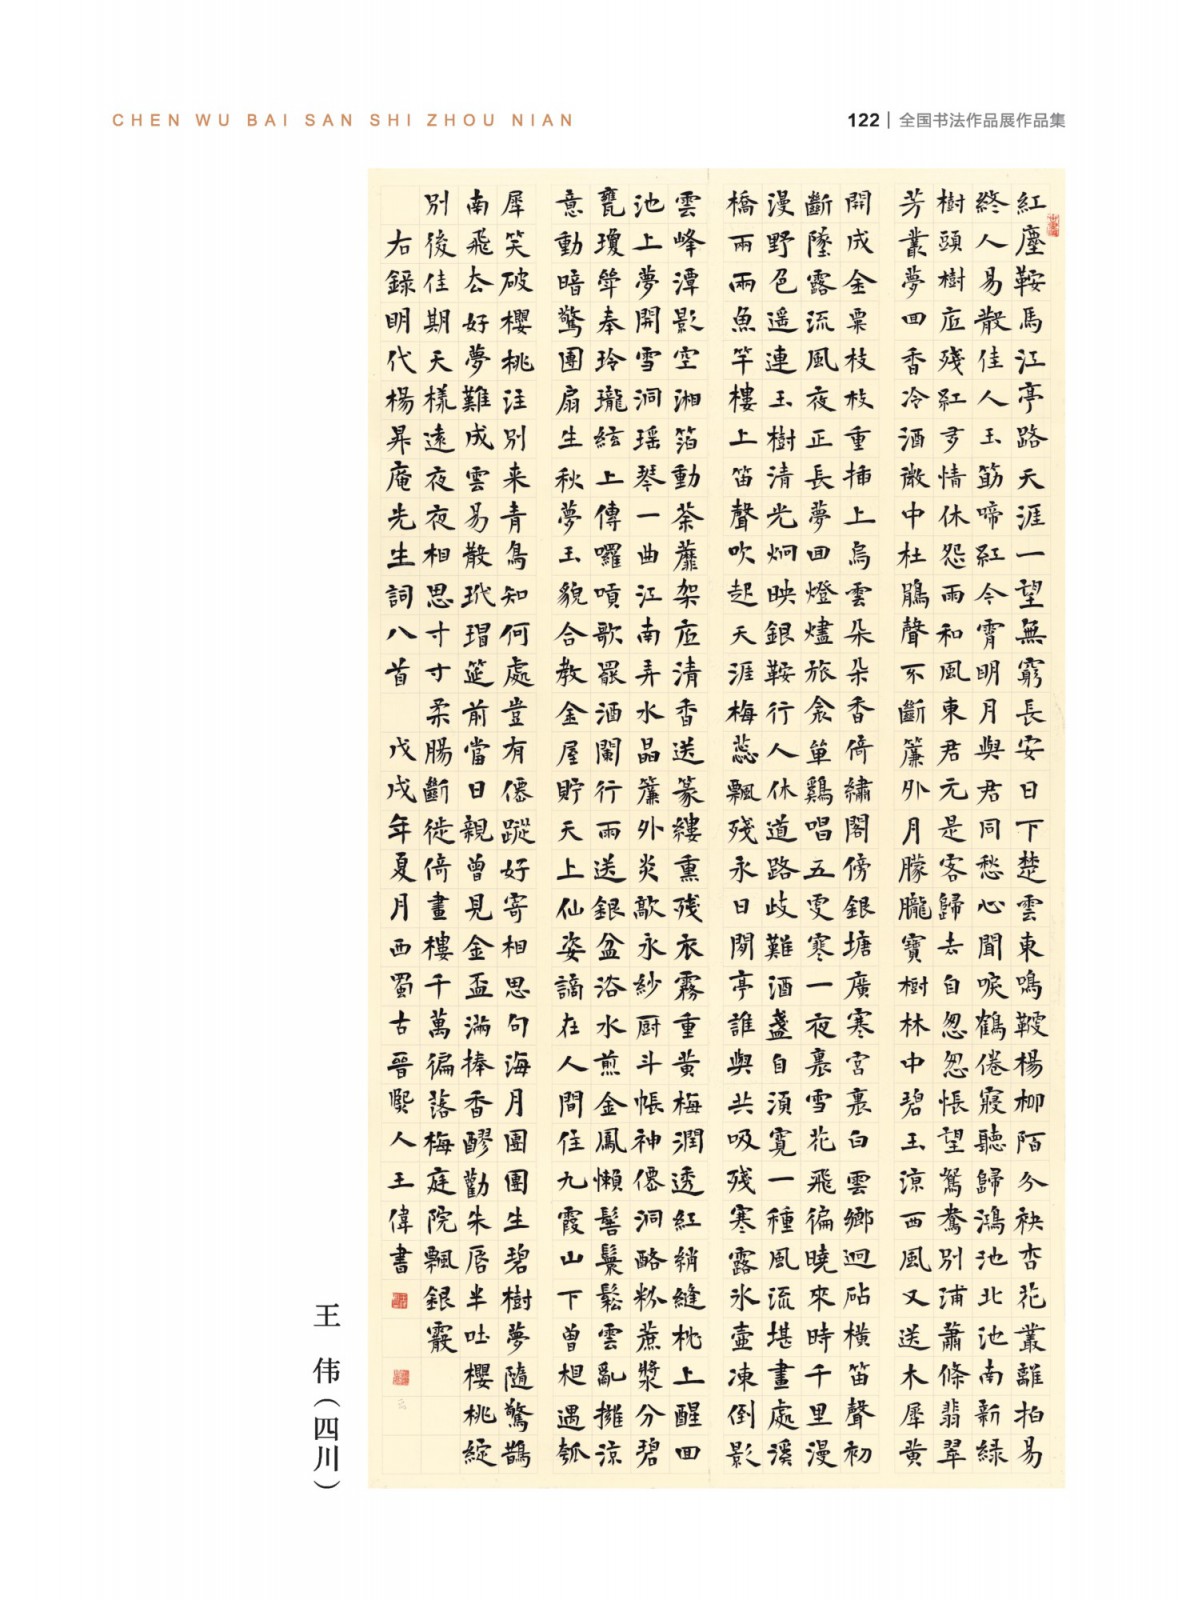 CHEN WU BAI SAN SHI ZHOU NIAN
122 | 全国书法作品展作品集
紅塵鞍馬江亭路天涯一望無窮長安日下楚雲東鳴鞭楊柳陌分袂杏花叢離拍易
終人易散佳人玉筯啼紅今霄明月與君同愁心聞唳鶴倦寢聽歸鴻池北池南新綠
樹頭樹底殘紅多情休怨雨和風東君元是客歸去自忽忽悵望鴛鴦別浦蕭條翡翠
芳叢夢回香冷酒微中杜鵑聲不斷簾外月朦朧寶樹林中碧玉涼西風又送木犀黄
開成金粟枝枝重插上烏雲朵朵香倚繡閣傍銀塘廣寒宮裏白雲鄉迴砧橫笛聲初
斷墜露流風夜正長夢回燈燼旅衾單鷄唱五更寒一夜裏雪花飛徧曉來時千里漫
漫野色遥連玉樹清光炯映銀鞍行人休道路歧難酒盞自須寬一種風流堪畫處溪
橋雨雨魚竿樓上笛聲吹起天涯梅蕊飄殘永日閒亭誰與共吸殘寒露氷壺凍倒影
雲峰潭影空湘箔動荼蘼架底清香送篆縷熏殘衣霧重黄梅潤透紅綃縫枕上醒回
池上夢開雪洞瑶琴一曲江南弄水晶簾外炎歊永紗厨斗帳神僊洞酪粉蔗漿分碧
甕瓊斝奉玲瓏絃上傳囉嗊歌罷酒闌行雨送銀盆浴水煎金鳳懶髻鬟鬆雲亂擁涼
意動暗驚團扇生秋夢玉貌合教金屋貯天上仙姿謫在人間住九霞山下曾相遇瓠
犀笑破櫻桃注別来青鳥知何處豈有僊蹤好寄相思句海月團團生碧樹夢隨驚鵲
南飛去好夢難成雲易散玳瑁筵前當日親曾見金盃滿捧香醪勸朱唇半吐櫻桃綻
別後佳期天樣遠夜夜相思寸寸柔腸斷徙倚畫樓千萬徧落梅庭院飄銀霰
右錄明代楊昇庵先生詞八首 戊戌年夏月西蜀古晉熙人王偉書
王 伟（四川）